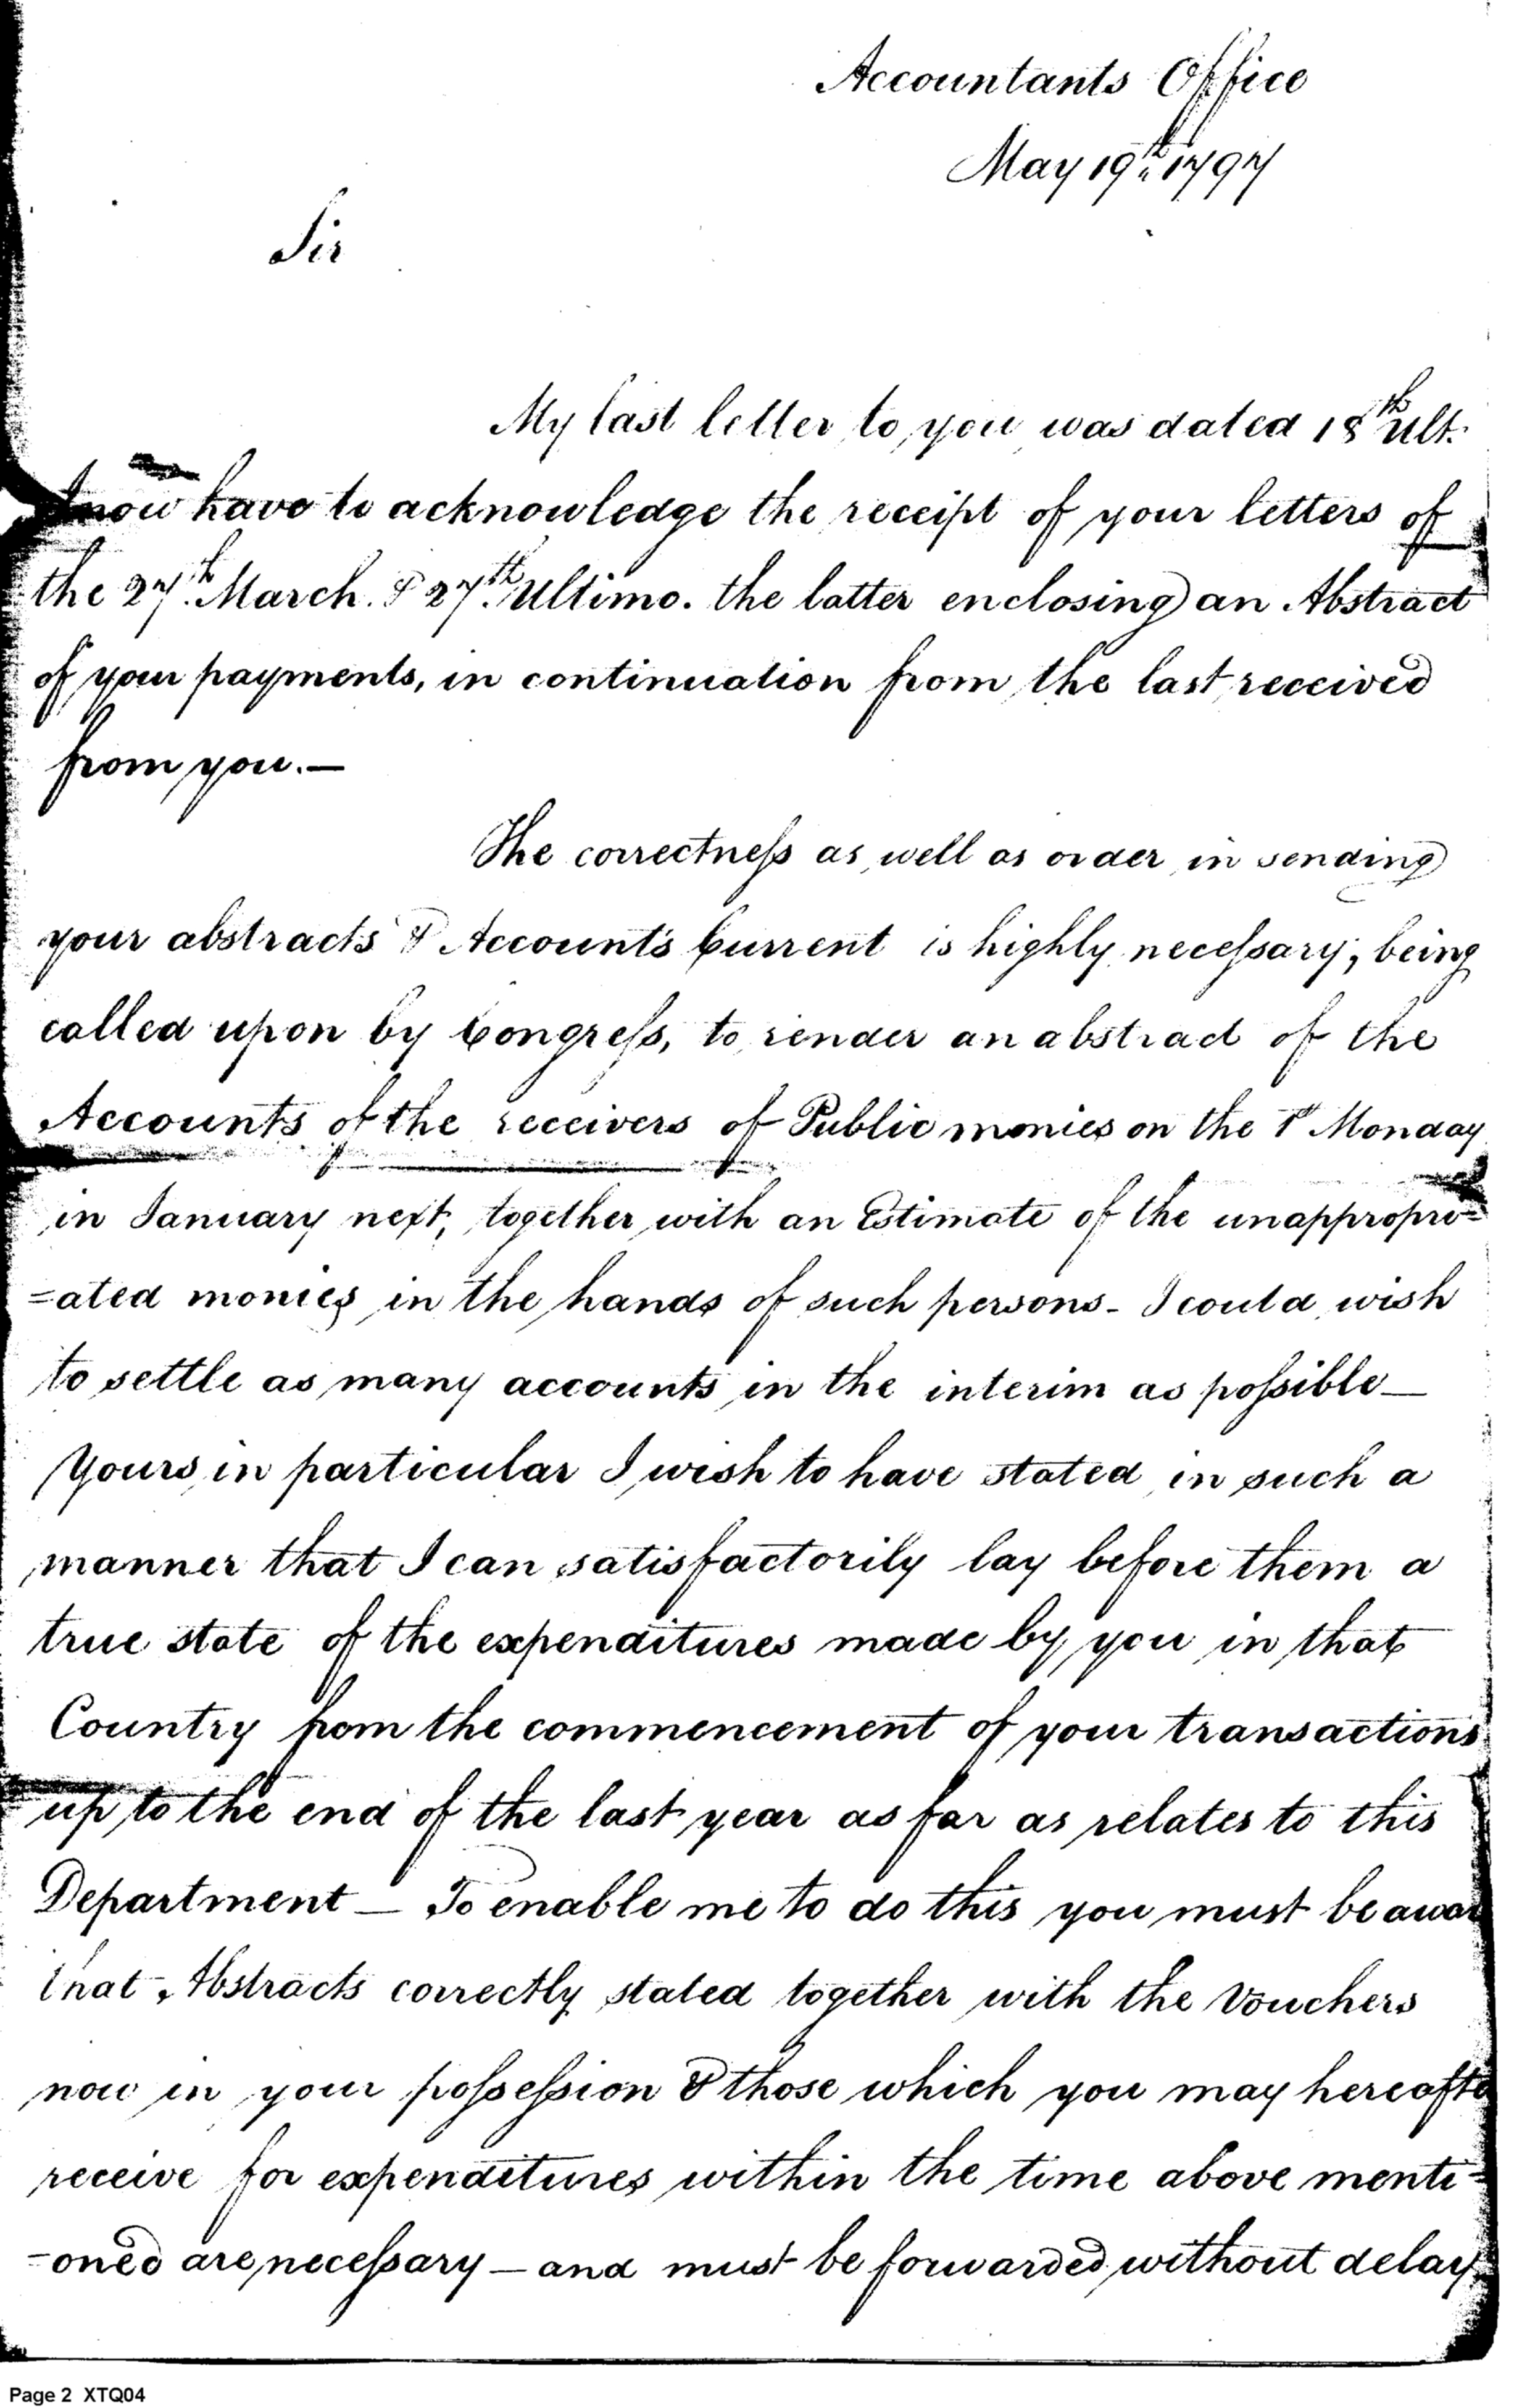 Accountants Office
May 19th 1797
Sir
My last letter to you was dated 18th Ult.
I now have to acknowledge the receipt of your letters of
the 27th March. & 27th Ultimo. the latter enclosing an Abstract
of your payments, in continuation from the last received
from you.—
The correctneſs as well as order in sending
your abstracts & Accounts Current is highly neceſsary; being
called upon by Congreſs, to render an abstract of the
Accounts of the receivers of Public monies on the 1st Monday
in January next, together with an Estimate of the unappropri=
=ated monies in the hands of such persons - I could wish
to settle as many accounts in the interim as poſsible—
Yours in particular I wish to have stated in such a
manner that I can satisfactorily lay before them a
true state of the expenditures made by you in that
Country from the commencement of your transactions
up to the end of the last year as far as relates to this
Department — To enable me to do this you must be awar
that Abstracts correctly stated together with the Vouchers
now in your poſseſsion & those which you may hereafte
receive for expenditures within the time above menti=
=oned are neceſsary — and must be forwarded without delay.
Page 2 XTQ04